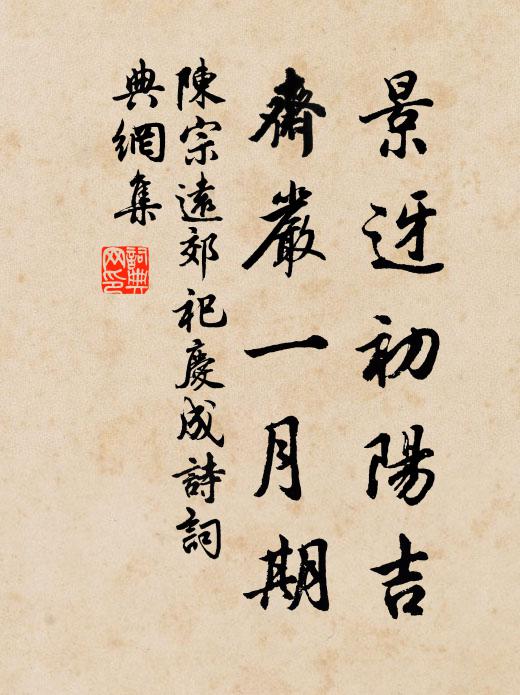 景迓初陽吉
齋嚴一月期
陳宗遠郊祀慶成詩詞
典網集
詞典
網印